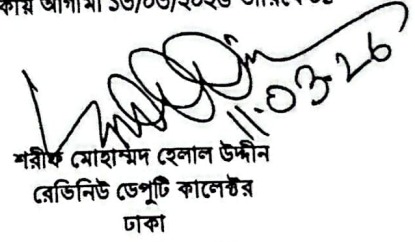 আগামী ১৬/০৩/২০২৬ তারিখে
11.03.26
শরীফ মোহাম্মদ হেলাল উদ্দীন
রেভিনিউ ডেপুটি কালেক্টর
ঢাকা